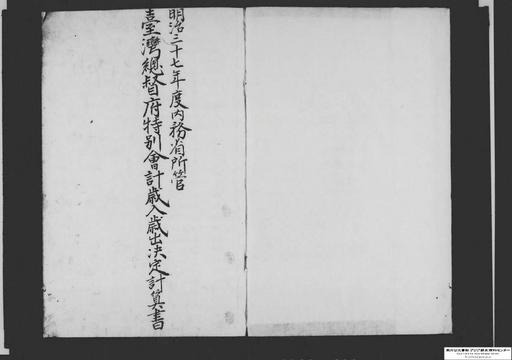 明治三十七年度内務省所管
臺灣總督府特別會計歳入歳出決定計算書